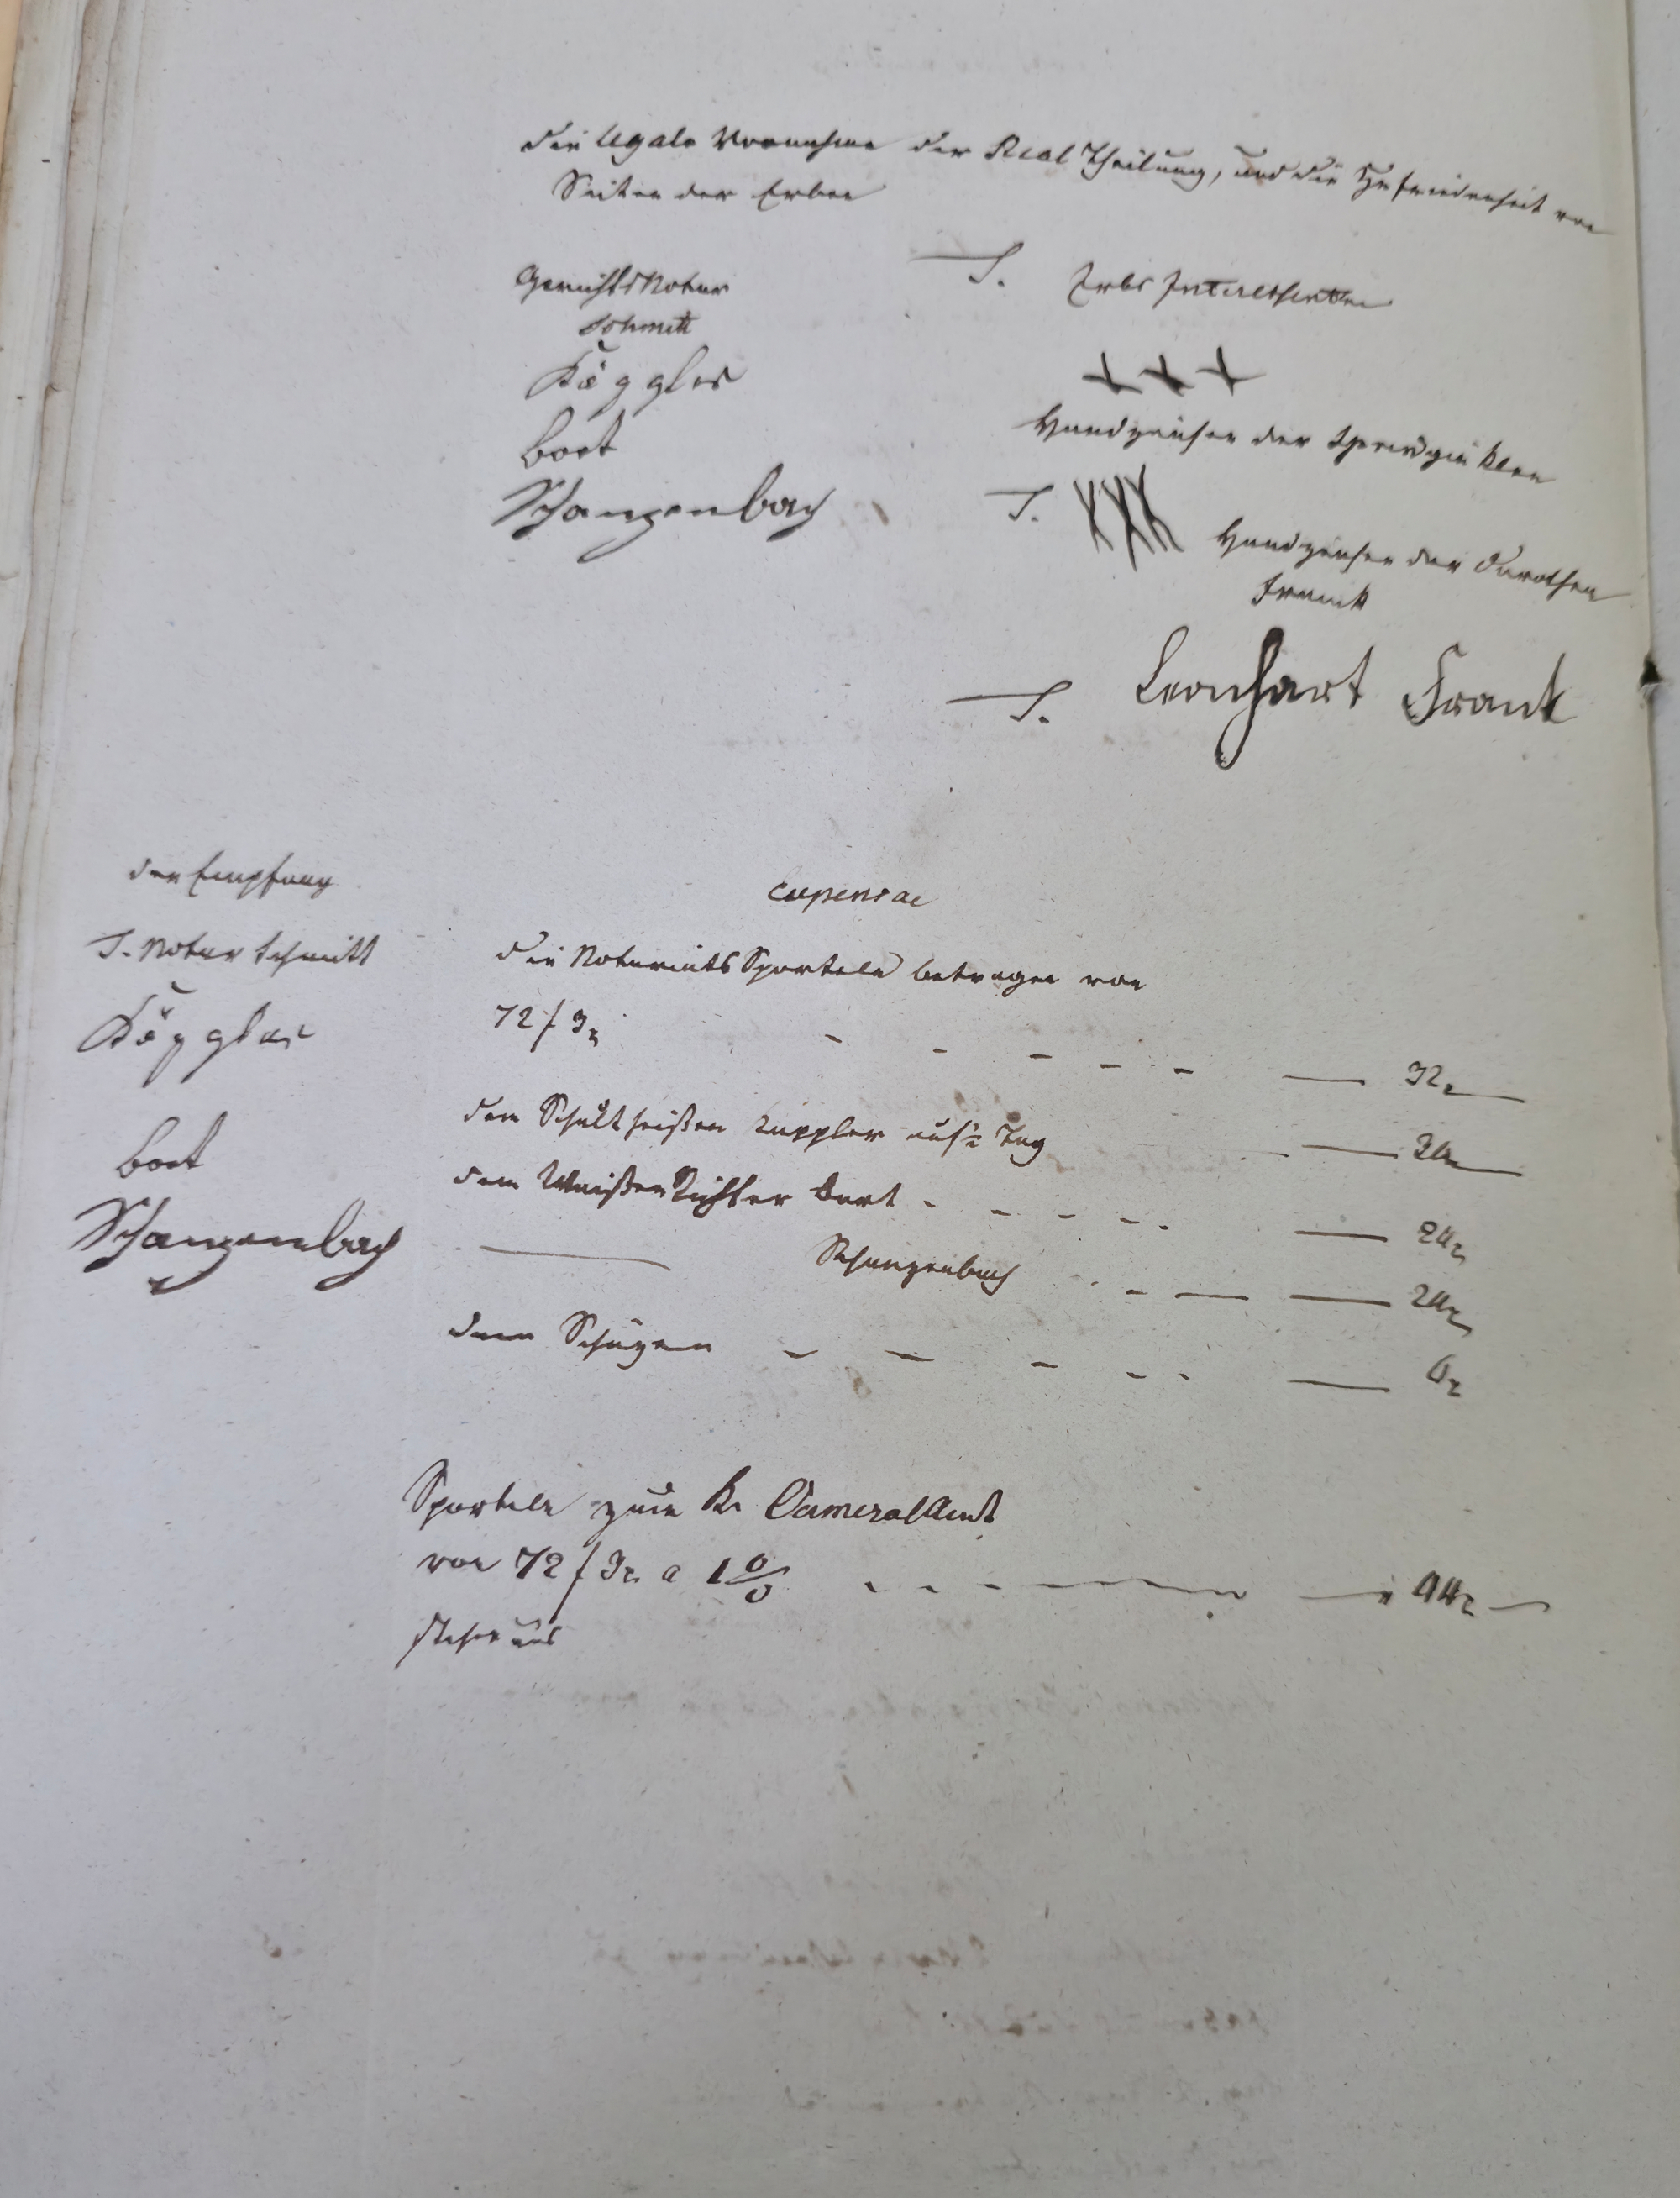 die legale Vornahme der Real Theilung, und die Zufriedenheit von
Seiten der Erben
GerichtsNotar
Schmitt
T. Erbs Interessenten
Käppler
+ + +
Bort
Handzeichen der
Schanzenbach
T. XXX Handzeichen der Dorothea
Frank
T. Leonhart Frank
den Empfang
expensae
T. Notar Schmitt
die NotariatsSporteln betragen von
72 f 3 x
Käppler
dem Schultheißen Käppler auf Tag
Bort
dem WaisenRichter Bort - 24 x
Schanzenbach
Schanzenbach - 24 x
dem Schüzen - 6 x
Sporteln zum K. CameralAmt
von 72 f 3 x a 1 % - 44 x